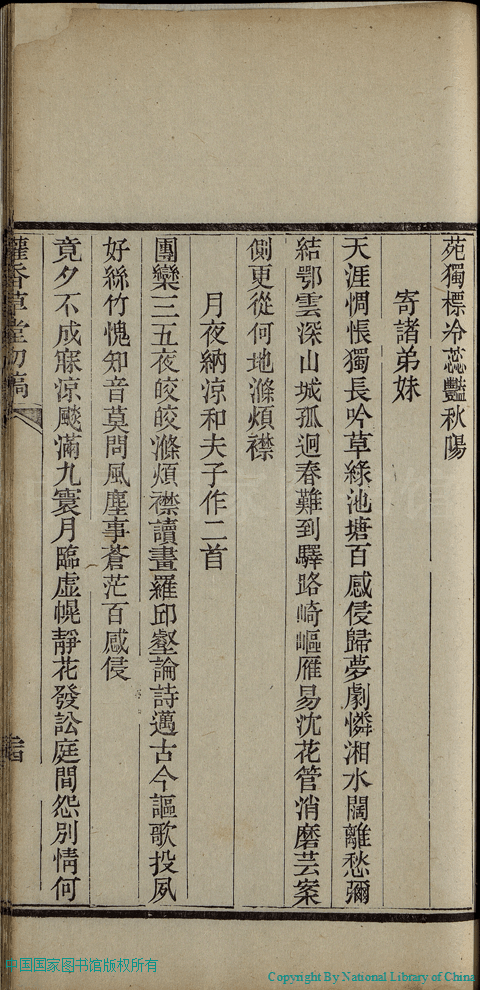 苑獨標冷蕊豔秋陽
寄諸弟妹
天涯惆悵獨長吟草綠池塘百感侵歸夢劇憐湘水闊離愁彌
結鄂雲深山城孤迥春難到驛路崎嶇雁易沈花管消磨芸案
側更從何地滌煩襟
月夜納涼和夫子作二首
團欒三五夜皎皎滌煩襟讀畫羅邱壑論詩邁古今謳歌投夙
好絲竹愧知音莫問風塵事蒼茫百感侵
竟夕不成寐涼飈滿九寰月臨虛幌靜花發訟庭閒怨別情何
蘐香草堂初稿
中国国家图书馆版权所有
Copyright By National Library of China